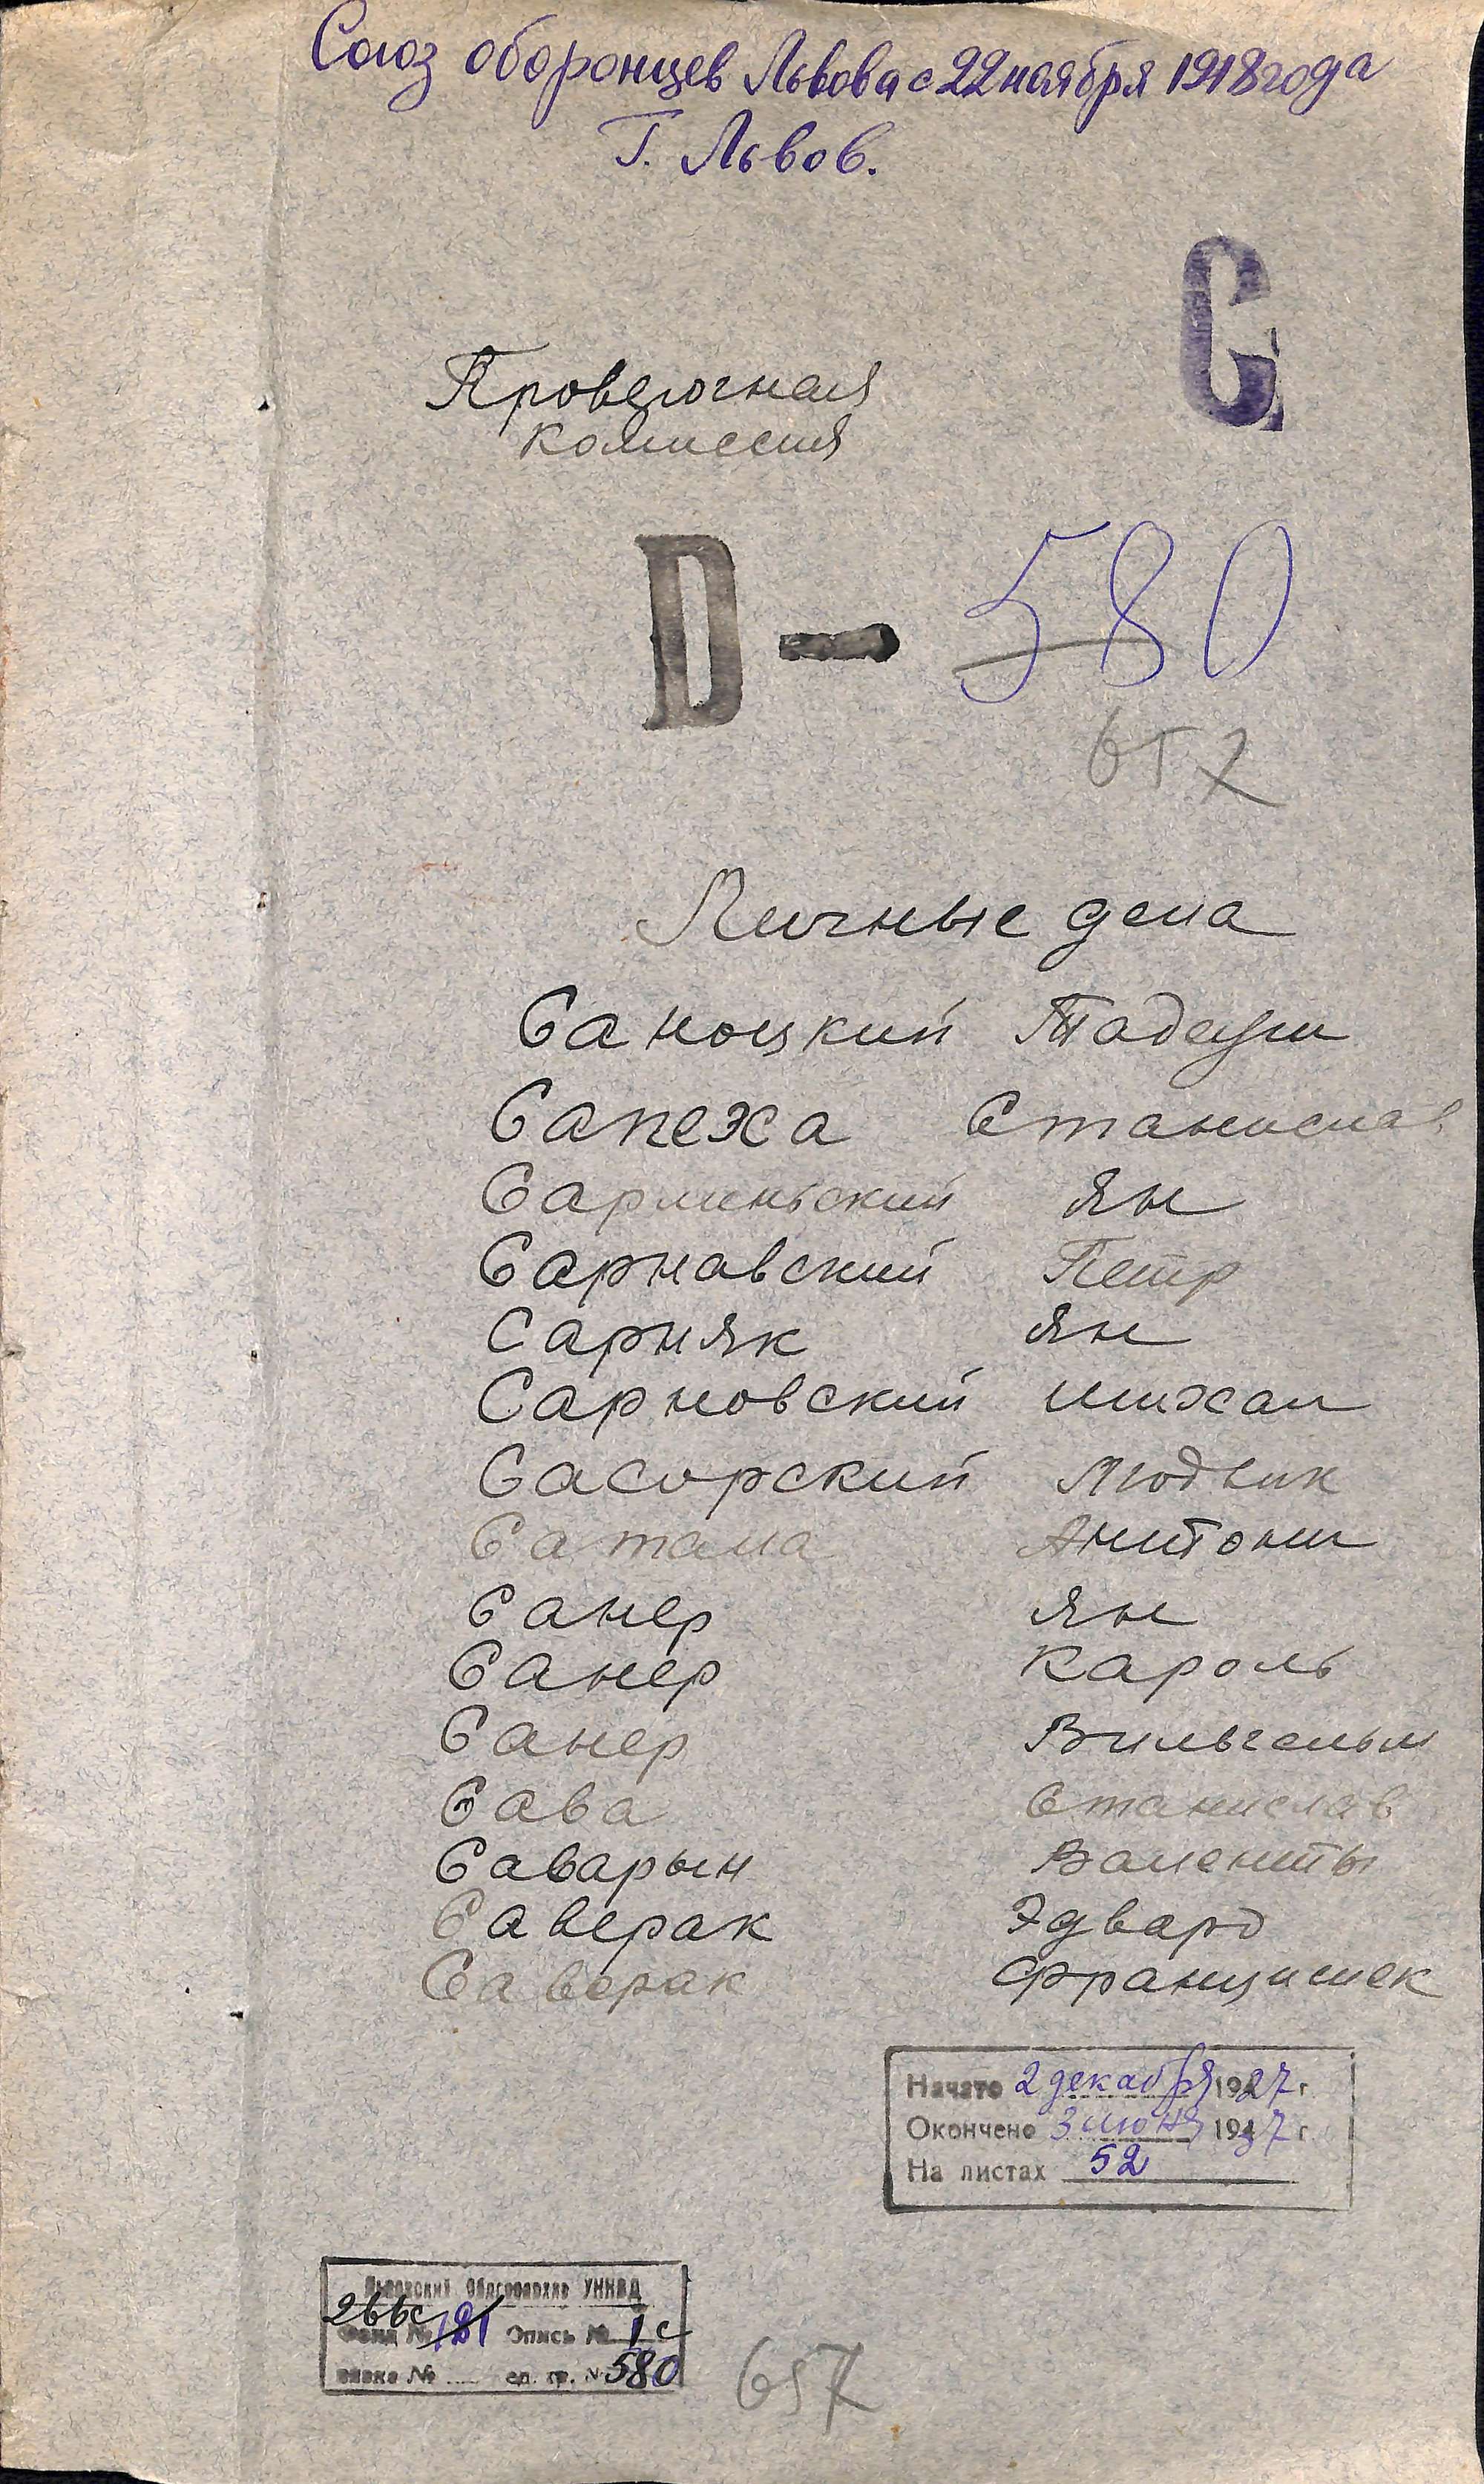 Союз оборонцев Львова с 22 ноября 1918 года
Г. Львов.
С
Проверочная
комиссия
D - 580
657
Личные дела
Саноцкий Тадеуш
Сапеха Станислав
Сарминьский Ян
Сарнавский Петр
Сарняк Ян
Сарновский Михал
Сасорский Людвик
Сатала Антони
Санер Ян
Санер Кароль
Санер Вильгельм
Сава Станислав
Саварын Валенты
Саверак Эдвард
Саверак Францишек
Начато 2 декабря 1927 г.
Окончено 3 июня 1937 г.
На листах 52
Львовский Облгосархив УНКВД
266с
Фонд № 121 Опись № 1с
вязка № ед. хр. № 580
657